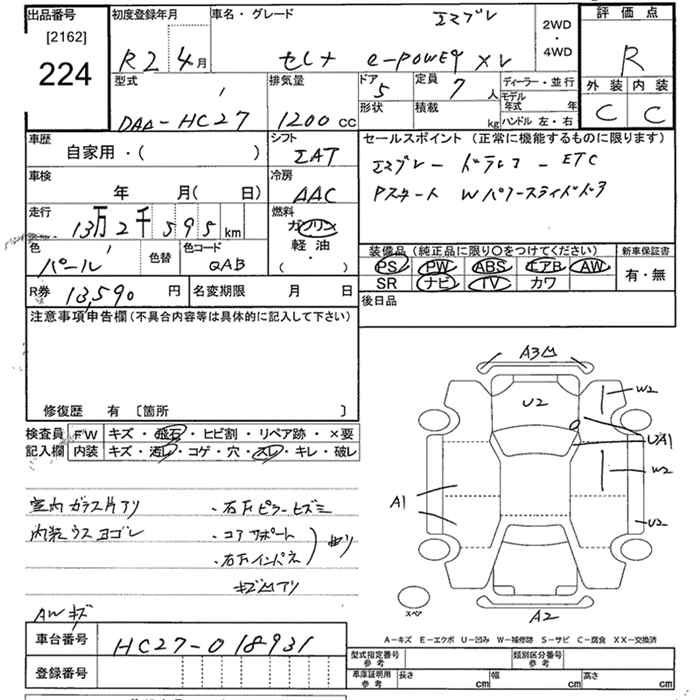 出品番号 [2162] 224
初度登録年月 R2 4月
車名・グレード エマブレ
セレナ e-POWER XV
2WD・4WD
評価点 R
外装 内装
C C
型式 DAA-HC27
排気量 1200cc
ドア 5
形状
定員 7人
積載 kg
ディーラー・並行
モデル年式 年
ハンドル 左・右
車歴 自家用・( )
シフト IAT
セールスポイント (正常に機能するものに限ります)
エマブレー ドラレコ ー ETC
Pスタート Wパワースライドドア
車検 年 月( 日)
冷房 AAC
走行 13万2千595km
燃料 ガソリン 軽油・( )
色 パール
色替
色コード QAB
装備品 (純正品に限り○をつけてください)
新車保証書
PS PW ABS エアB AW
SR ナビ TV カワ
有・無
R券 13,590円
名変期限 月 日
後日品
注意事項申告欄 (不具合内容等は具体的に記入して下さい)
修復歴 有 [箇所 ]
検査員記入欄
FW キズ・飛石・ヒビ割・リペア跡・×要
内装 キズ・汚レ・コゲ・穴・スレ・キレ・破レ
室内ガラス片アリ
内装ウスヨゴレ
・右Fピラーヒズミ
・コアサポート
・右Fインパネ
曲リ
キズ凹アリ
AWキズ
A3凹
U2
W2
UA1
W2
A1
U2
スペア
A2
A-キズ E-エクボ U-凹み W-補修跡 S-サビ C-腐食 XX-交換済
車台番号 HC27-018931
登録番号
型式指定番号 参考
類別区分番号 参考
車庫証明用 参考
長さ cm 幅 cm 高さ cm